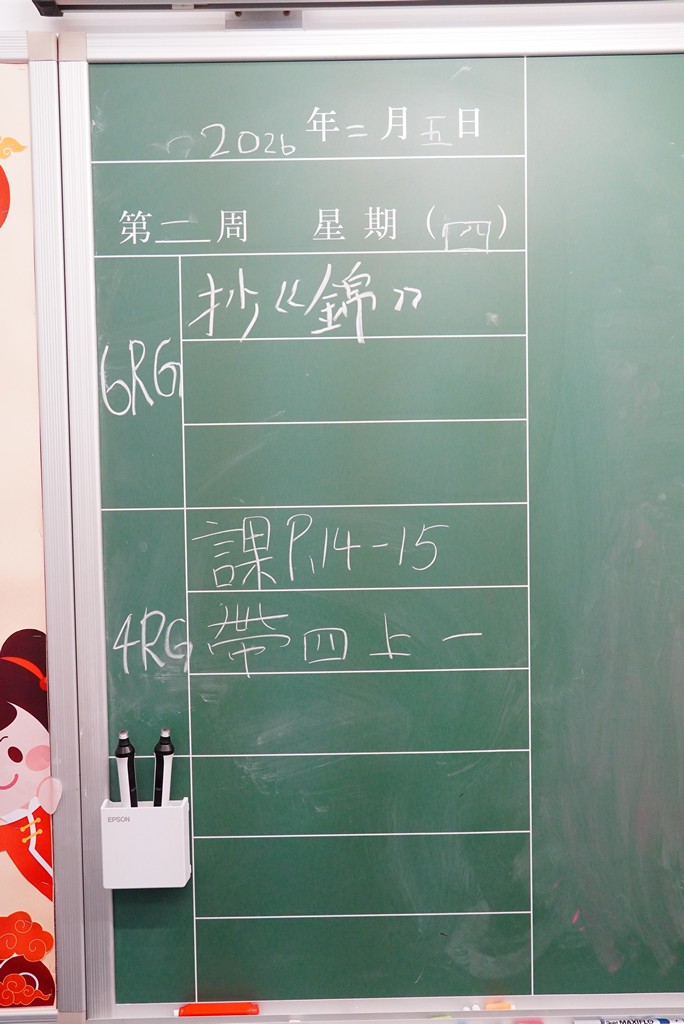 2026年二月五日
第二周 星期(四)
6RG
抄《錦》
4RG
課P.14-15
帶四上一
EPSON
MAXIFLO